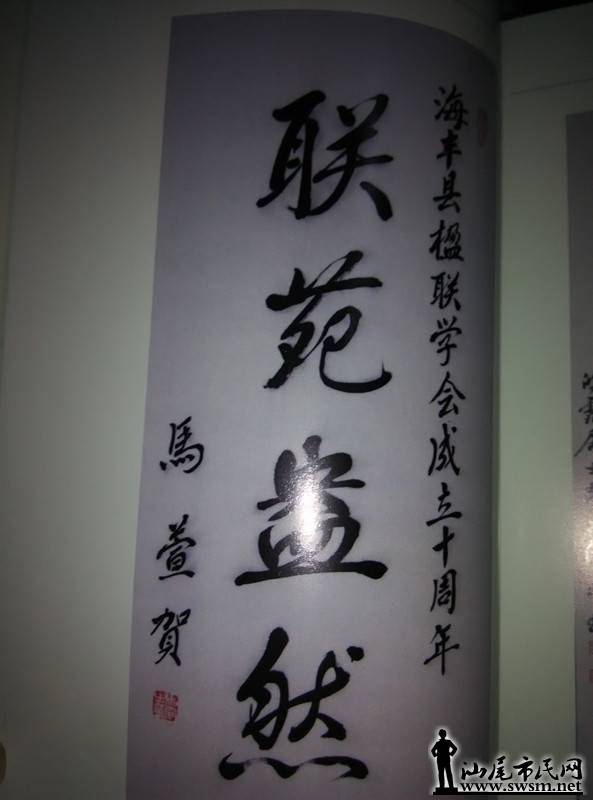 海丰县楹联学会成立十周年
联苑盎然
馬萱賀
汕尾市民网
www.swsm.net